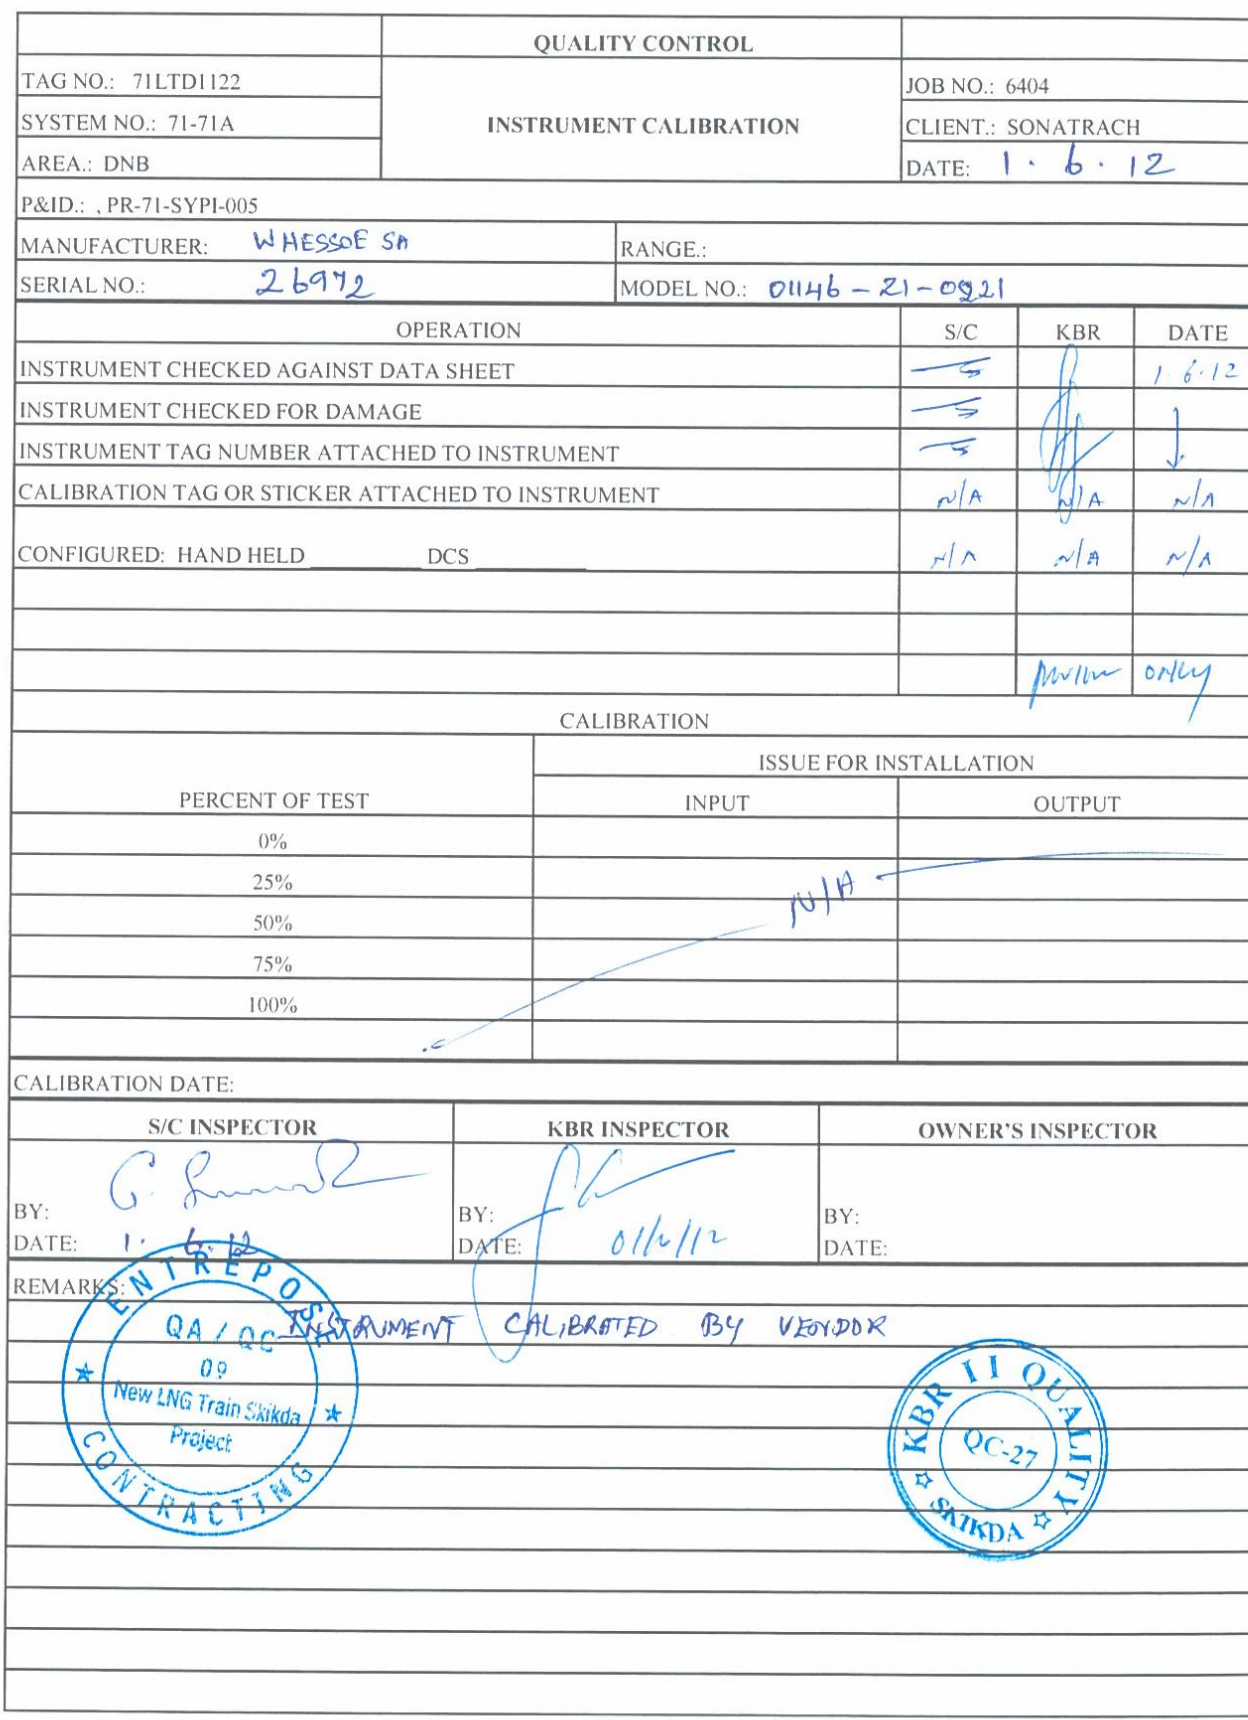 QUALITY CONTROL
TAG NO.: 71LTD1122
SYSTEM NO.: 71-71A
AREA.: DNB
INSTRUMENT CALIBRATION
JOB NO.: 6404
CLIENT.: SONATRACH
DATE: 1 . 6 . 12
P&ID.: , PR-71-SYPI-005
MANUFACTURER: WHESSOE SA
RANGE.:
SERIAL NO.: 26972
MODEL NO.: 01146-21-0921
OPERATION S/C KBR DATE
INSTRUMENT CHECKED AGAINST DATA SHEET 1.6.12
INSTRUMENT CHECKED FOR DAMAGE
INSTRUMENT TAG NUMBER ATTACHED TO INSTRUMENT
CALIBRATION TAG OR STICKER ATTACHED TO INSTRUMENT N/A N/A N/A
CONFIGURED: HAND HELD DCS N/A N/A N/A
only
CALIBRATION
ISSUE FOR INSTALLATION
PERCENT OF TEST INPUT OUTPUT
0%
25%
N/A
50%
75%
100%
CALIBRATION DATE:
S/C INSPECTOR KBR INSPECTOR OWNER'S INSPECTOR
BY: BY: BY:
DATE: 1. 6.12 DATE: DATE:
REMARKS:
INSTRUMENT CALIBRATED BY VENDOR
ENTREPOSE CONTRACTING
QA / QC
09
New LNG Train Skikda
Project
KBR II QUALITY
QC-27
SKIKDA